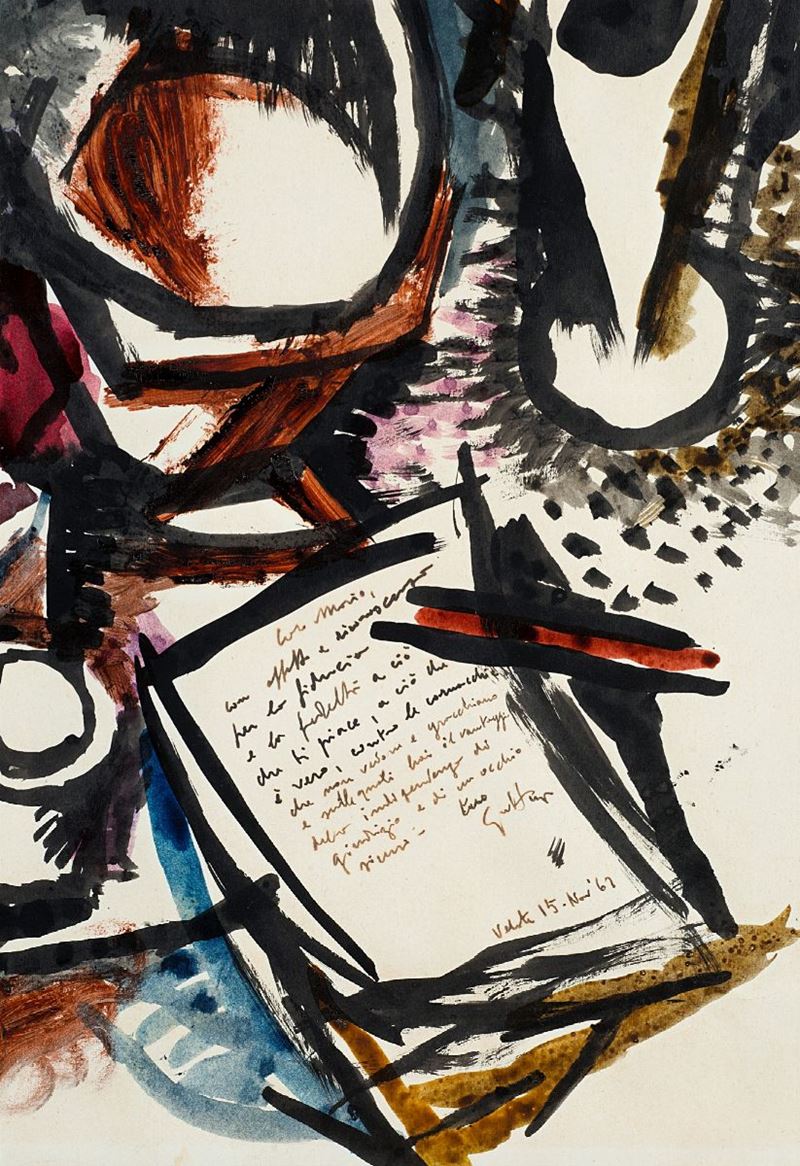 Caro Mario,
con affetto e riconoscenza
per la fiducia
e la fedeltà a ciò
che ti piace, a ciò che
è vero, contro le cornacchie
che non vedono e gracchiano
e sulle quali hai il vantaggio
della indipendenza di
giudizio e di un occhio
sicuro -
tuo
Guttuso
Velate 15. Nov '62